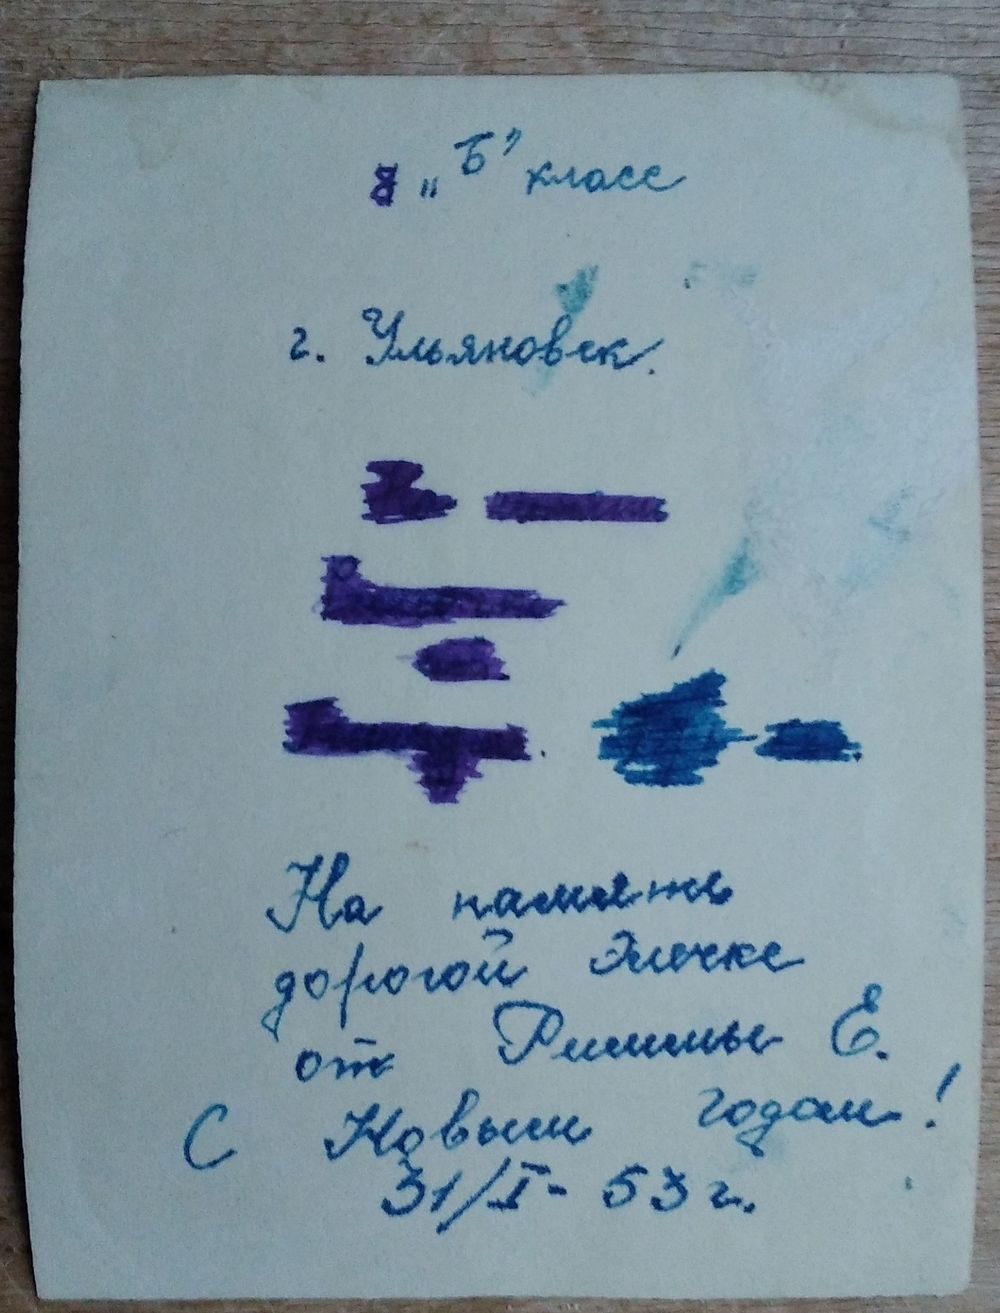 8 „Б" класс
г. Ульяновск.
На память
дорогой Элечке
от Риммы Е.
С Новым годом!
31/I- 53 г.